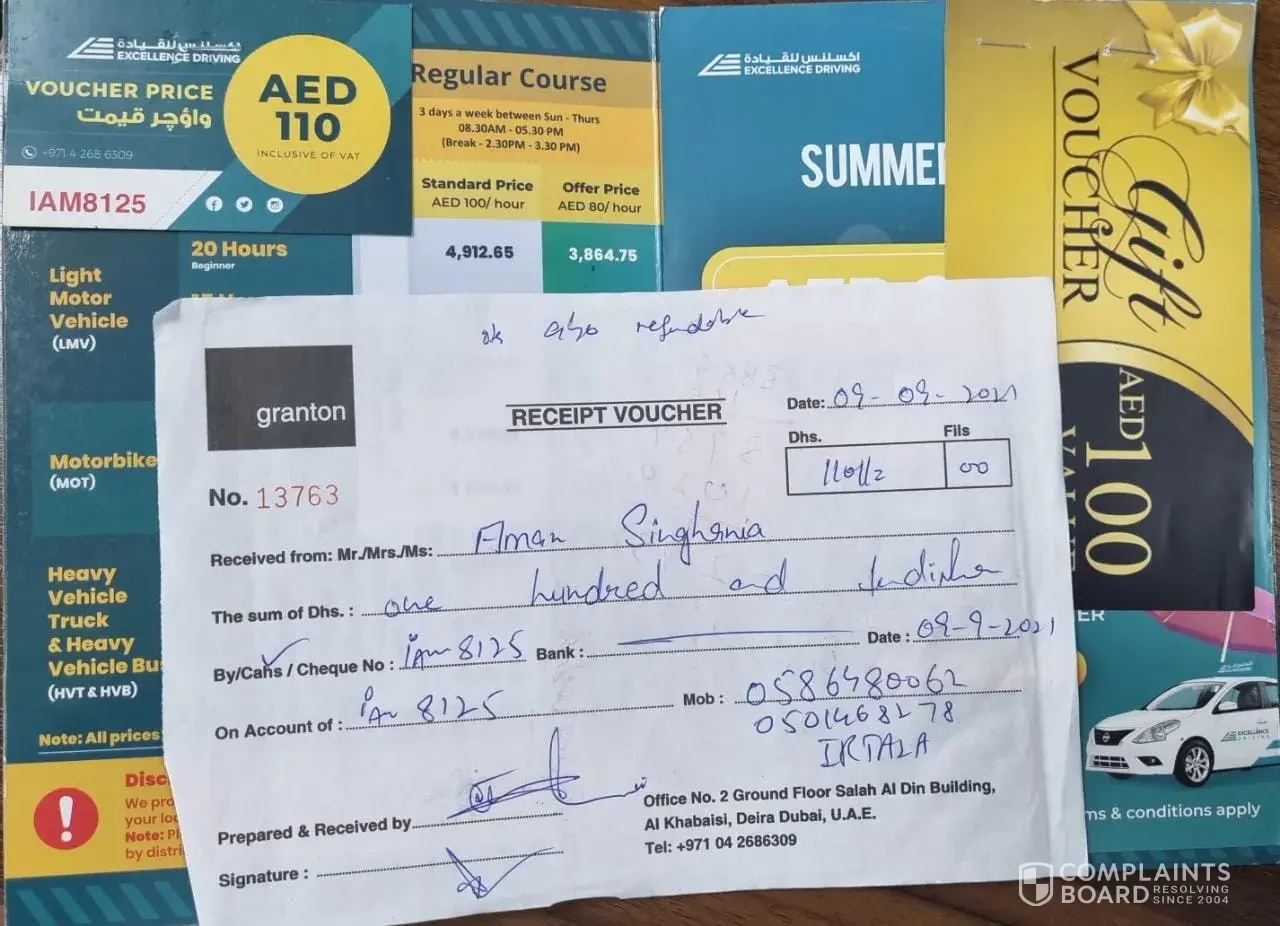 اكسلنس للقيادة
EXCELLENCE DRIVING
VOUCHER PRICE
واؤچر قیمت
AED
110
INCLUSIVE OF VAT
+971 4 268 6309
IAM8125
Regular Course
3 days a week between Sun - Thurs
08.30AM - 05.30 PM
(Break - 2.30PM - 3.30 PM)
Standard Price
AED 100/ hour
Offer Price
AED 80/ hour
4,912.65
3,864.75
20 Hours
Beginner
Light
Motor
Vehicle
(LMV)
Motorbike
(MOT)
Heavy
Vehicle
Truck
& Heavy
Vehicle Bu
(HVT & HVB)
Note: All prices
Disc
We pro
your loc
Note: Pl
by distri
اكسلنس للقيادة
EXCELLENCE DRIVING
SUMME
Gift
VOUCHER
AED 100
VALUE
ER
EXCELLENCE
DRIVING
ms & conditions apply
ok also refundable
granton
RECEIPT VOUCHER
Date: 09-09-2021
Dhs. Fils
110/2 00
No. 13763
Received from: Mr./Mrs./Ms: Aman Singhania
The sum of Dhs.: one hundred and
By/Cahs / Cheque No : iAm 8125 Bank : Date : 09-9-2021
On Account of : iAm 8125 Mob : 0586480062
0501468278
IRTAZA
Prepared & Received by
Signature :
Office No. 2 Ground Floor Salah Al Din Building,
Al Khabaisi, Deira Dubai, U.A.E.
Tel: +971 04 2686309
COMPLAINTS
BOARD RESOLVING
SINCE 2004